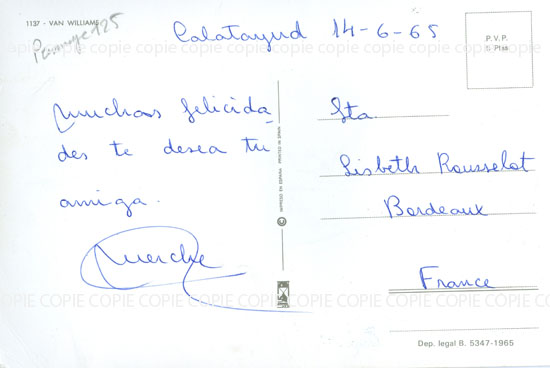 1137 - VAN WILLIAMS
Calatayud 14-6-65
P.V.P.
5 Ptas.
Muchas felicida
des te desea tu
amiga.
Merche
Sta
Lisbeth Rousselot
Bordeaux
France
IMPRESO EN ESPAÑA PRINTED IN SPAIN
Dep. legal B. 5347-1965
COPIE COPIE COPIE COPIE COPIE COPIE COPIE COPIE COPIE COPIE
COPIE COPIE COPIE COPIE COPIE COPIE COPIE COPIE COPIE COPIE